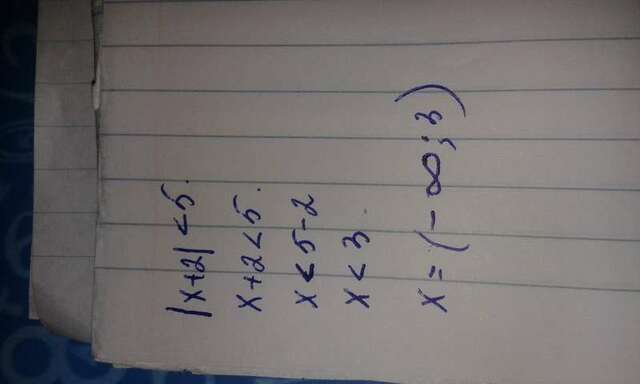 |x+2| <5.
x+2<5.
x<5-2
x<3.
x=(-∞;3)